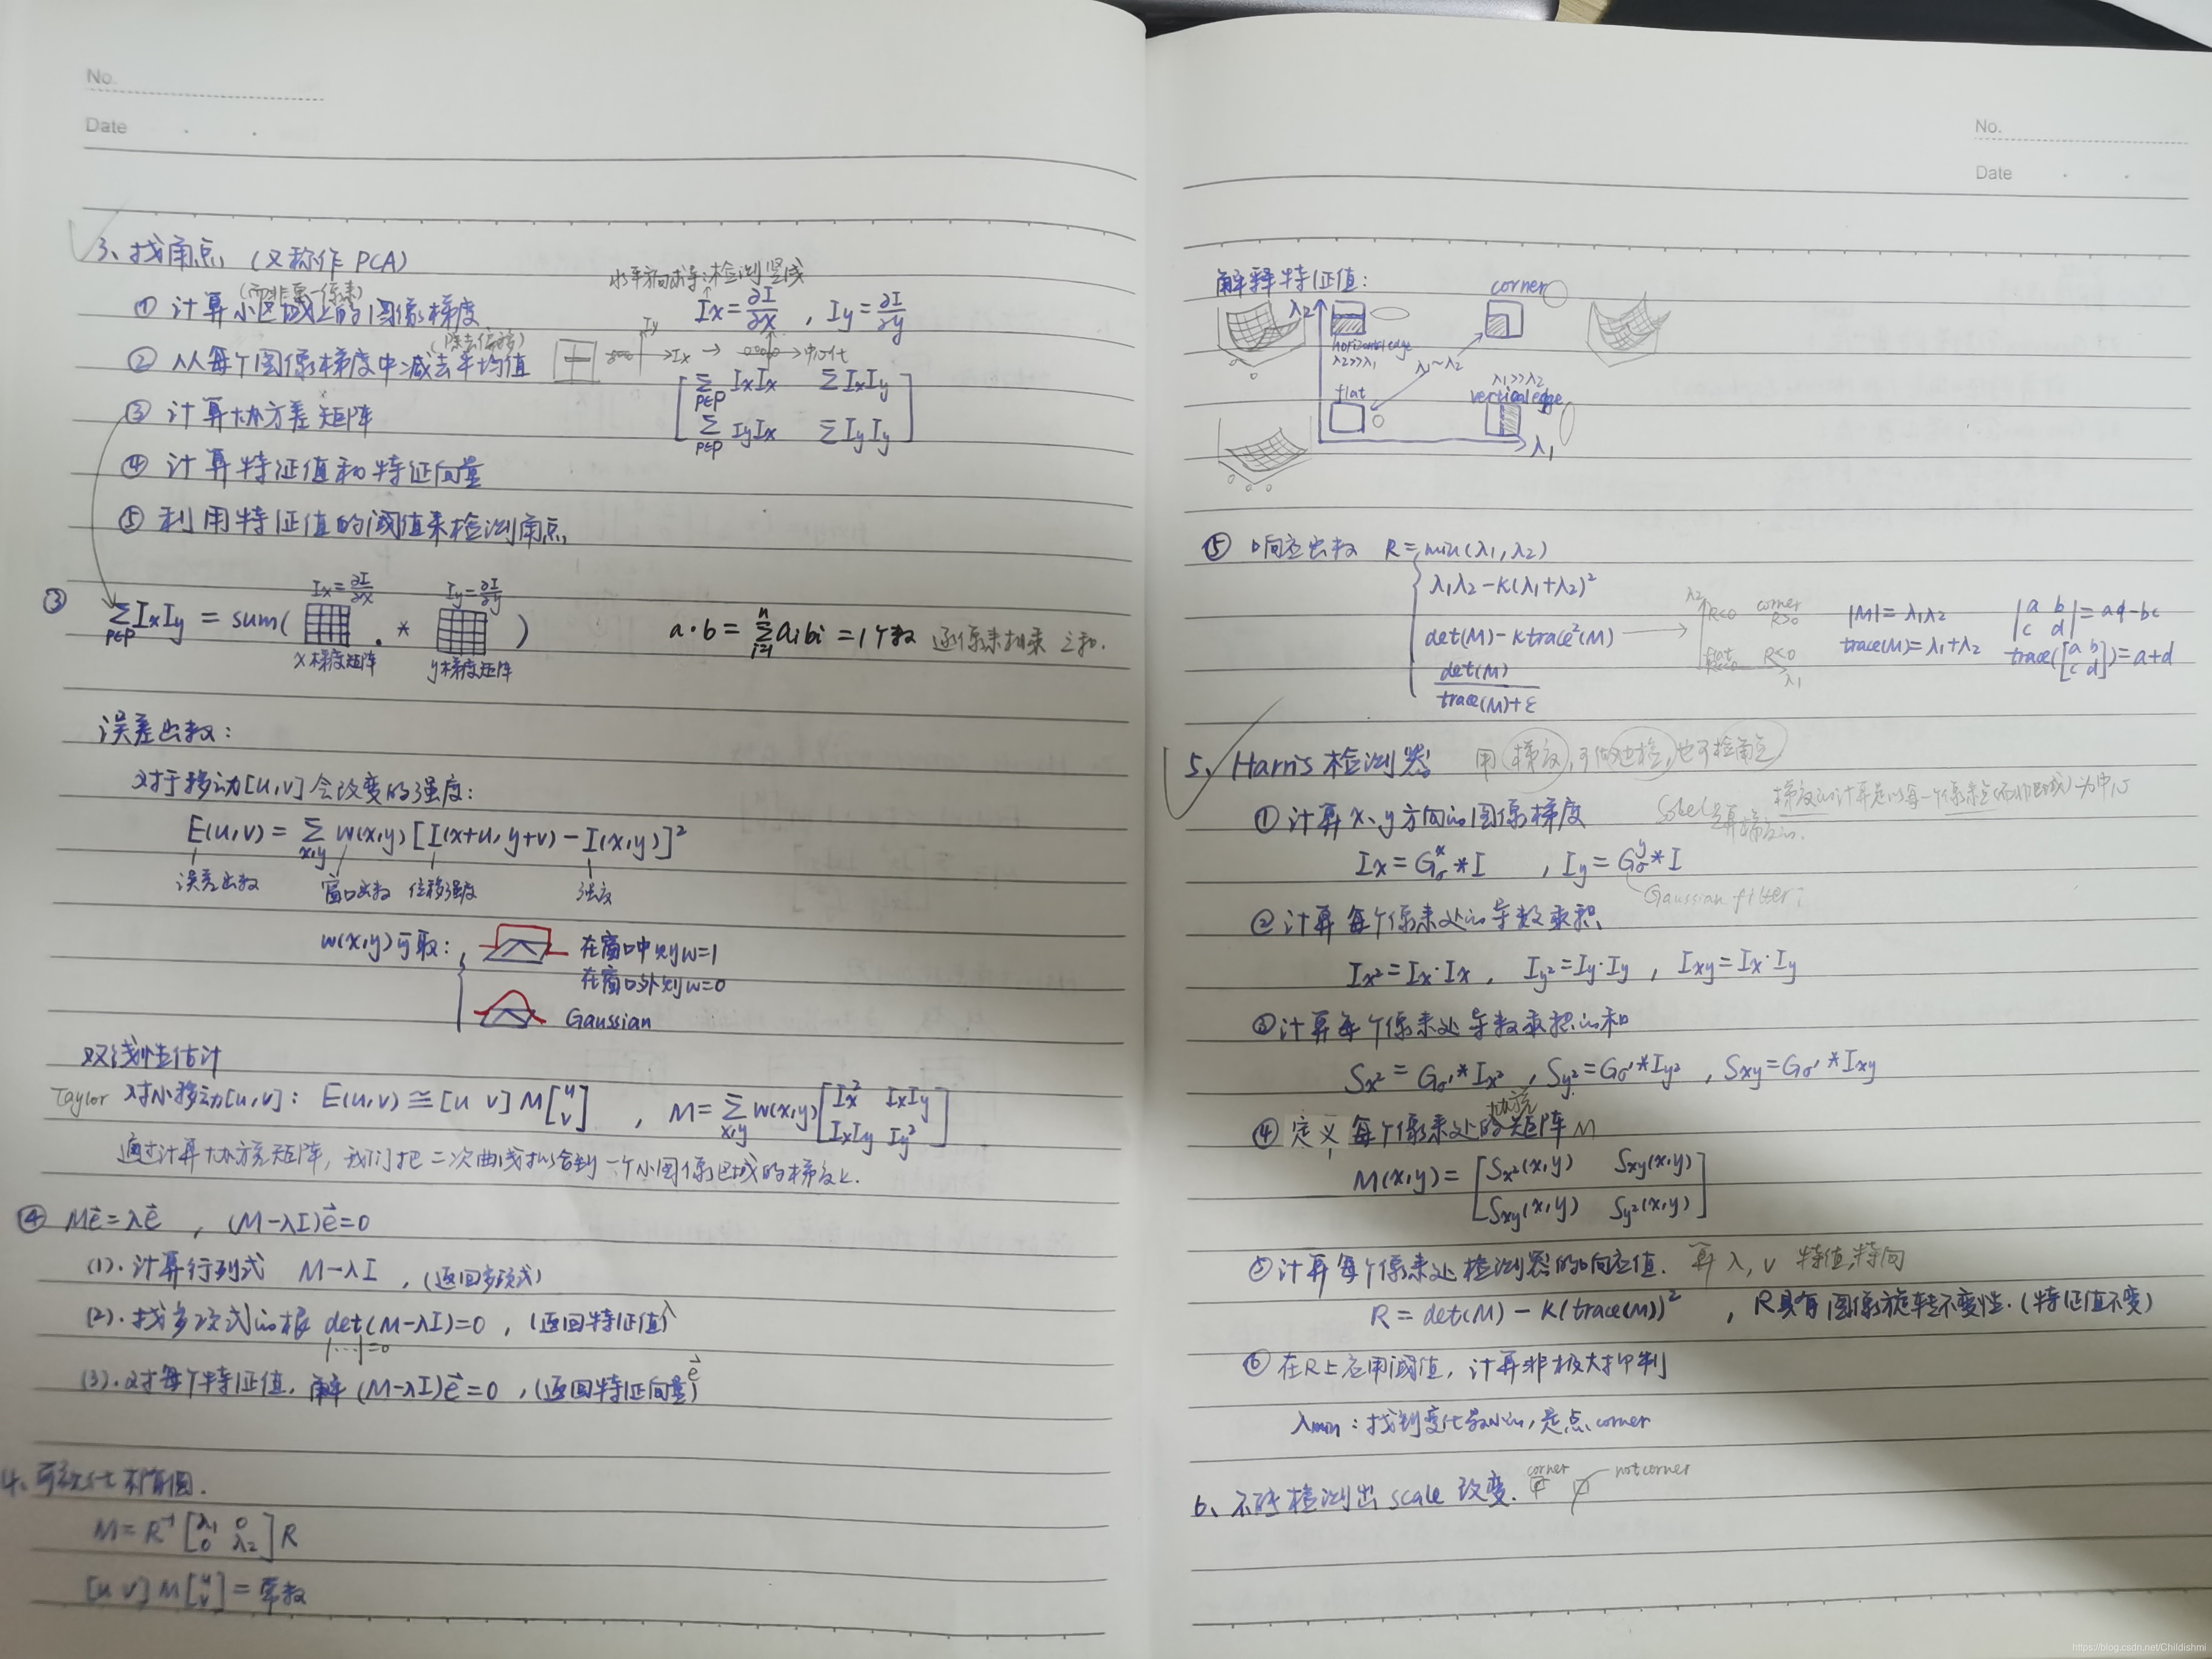 No.
Date
3、找角点 (又称作 PCA)
(而非单一像素)
水平方向求导:检测竖线
① 计算小区域上的图像梯度 Ix=∂I/∂x , Iy=∂I/∂y
(除去偏移)
② 从每个图像梯度中减去平均值
Iy
Ix → 中心化
③ 计算协方差矩阵
[ Σ p∈P IxIx Σ IxIy
Σ p∈P IyIx Σ IyIy ]
④ 计算特征值和特征向量
⑤ 利用特征值的阈值来检测角点
③
Ix=∂I/∂x Iy=∂I/∂y
Σ p∈P IxIy = sum( .* )
x梯度矩阵 y梯度矩阵
a·b = Σ i=1 n aibi = 1个数 逐像素相乘之和.
误差函数:
对于移动[u,v]会改变的强度:
E(u,v) = Σ x,y w(x,y) [I(x+u, y+v) − I(x,y)]²
误差函数 窗口函数 位移强度 强度
w(x,y)可取: 在窗口中则w=1
在窗口外则w=0
Gaussian
双线性估计
Taylor 对小移动[u,v]: E(u,v) ≅ [u v] M [u v] , M = Σ x,y w(x,y) [ Ix² IxIy
IxIy Iy² ]
通过计算协方差矩阵, 我们把二次曲线拟合到一个小图像区域的梯度上.
④ Me⃗=λe⃗ , (M−λI)e⃗=0
(1). 计算行列式 M−λI , (返回多项式)
(2). 找多项式的根 det(M−λI)=0 , (返回特征值λ)
|…|=0
(3). 对每个特征值, 解 (M−λI)e⃗=0 , (返回特征向量e⃗)
4、可视化 椭圆.
M=R⁻¹ [ λ1 0
0 λ2 ] R
[u v] M [u v] = 常数
No.
Date
解释特征值:
corner
λ2
horizontal edge
λ2>>λ1
λ1~λ2
flat
λ1>>λ2
vertical edge
λ1
⑤ 响应函数 R= min(λ1,λ2)
λ1λ2−K(λ1+λ2)²
det(M)−Ktrace²(M)
det(M)/trace(M)+ε
λ2
R<0 corner R>0
flat R<0
λ1
|M|=λ1λ2
trace(M)=λ1+λ2
|a b c d|=ad−bc
trace([a b c d])=a+d
5、Harris 检测器 用 梯度, 可做边检, 也可检角点
① 计算x、y方向的图像梯度
Sobel是算梯度的.
梯度的计算是以每一个像素点(而非区域)为中心
Ix = Gσˣ * I , Iy = Gσʸ * I
Gaussian filter;
② 计算每个像素处的导数乘积
Ix²=Ix·Ix , Iy²=Iy·Iy , Ixy=Ix·Iy
③ 计算每个像素处导数乘积的和
Sx² = Gσ'*Ix² , Sy²=Gσ'*Iy² , Sxy=Gσ'*Ixy
协方差
④ 定义每个像素处的矩阵M
M(x,y) = [ Sx²(x,y) Sxy(x,y)
Sxy(x,y) Sy²(x,y) ]
⑤ 计算每个像素处检测器的响应值. 算 λ, v 特值,特向
R = det(M) − K(trace(M))² , R具有图像旋转不变性.(特征值不变)
⑥ 在R上应用阈值, 计算非极大抑制
λmin : 找到变化最小的, 是点、corner
6、不能检测出 scale 改变.
corner not corner
https://blog.csdn.net/Childishmi